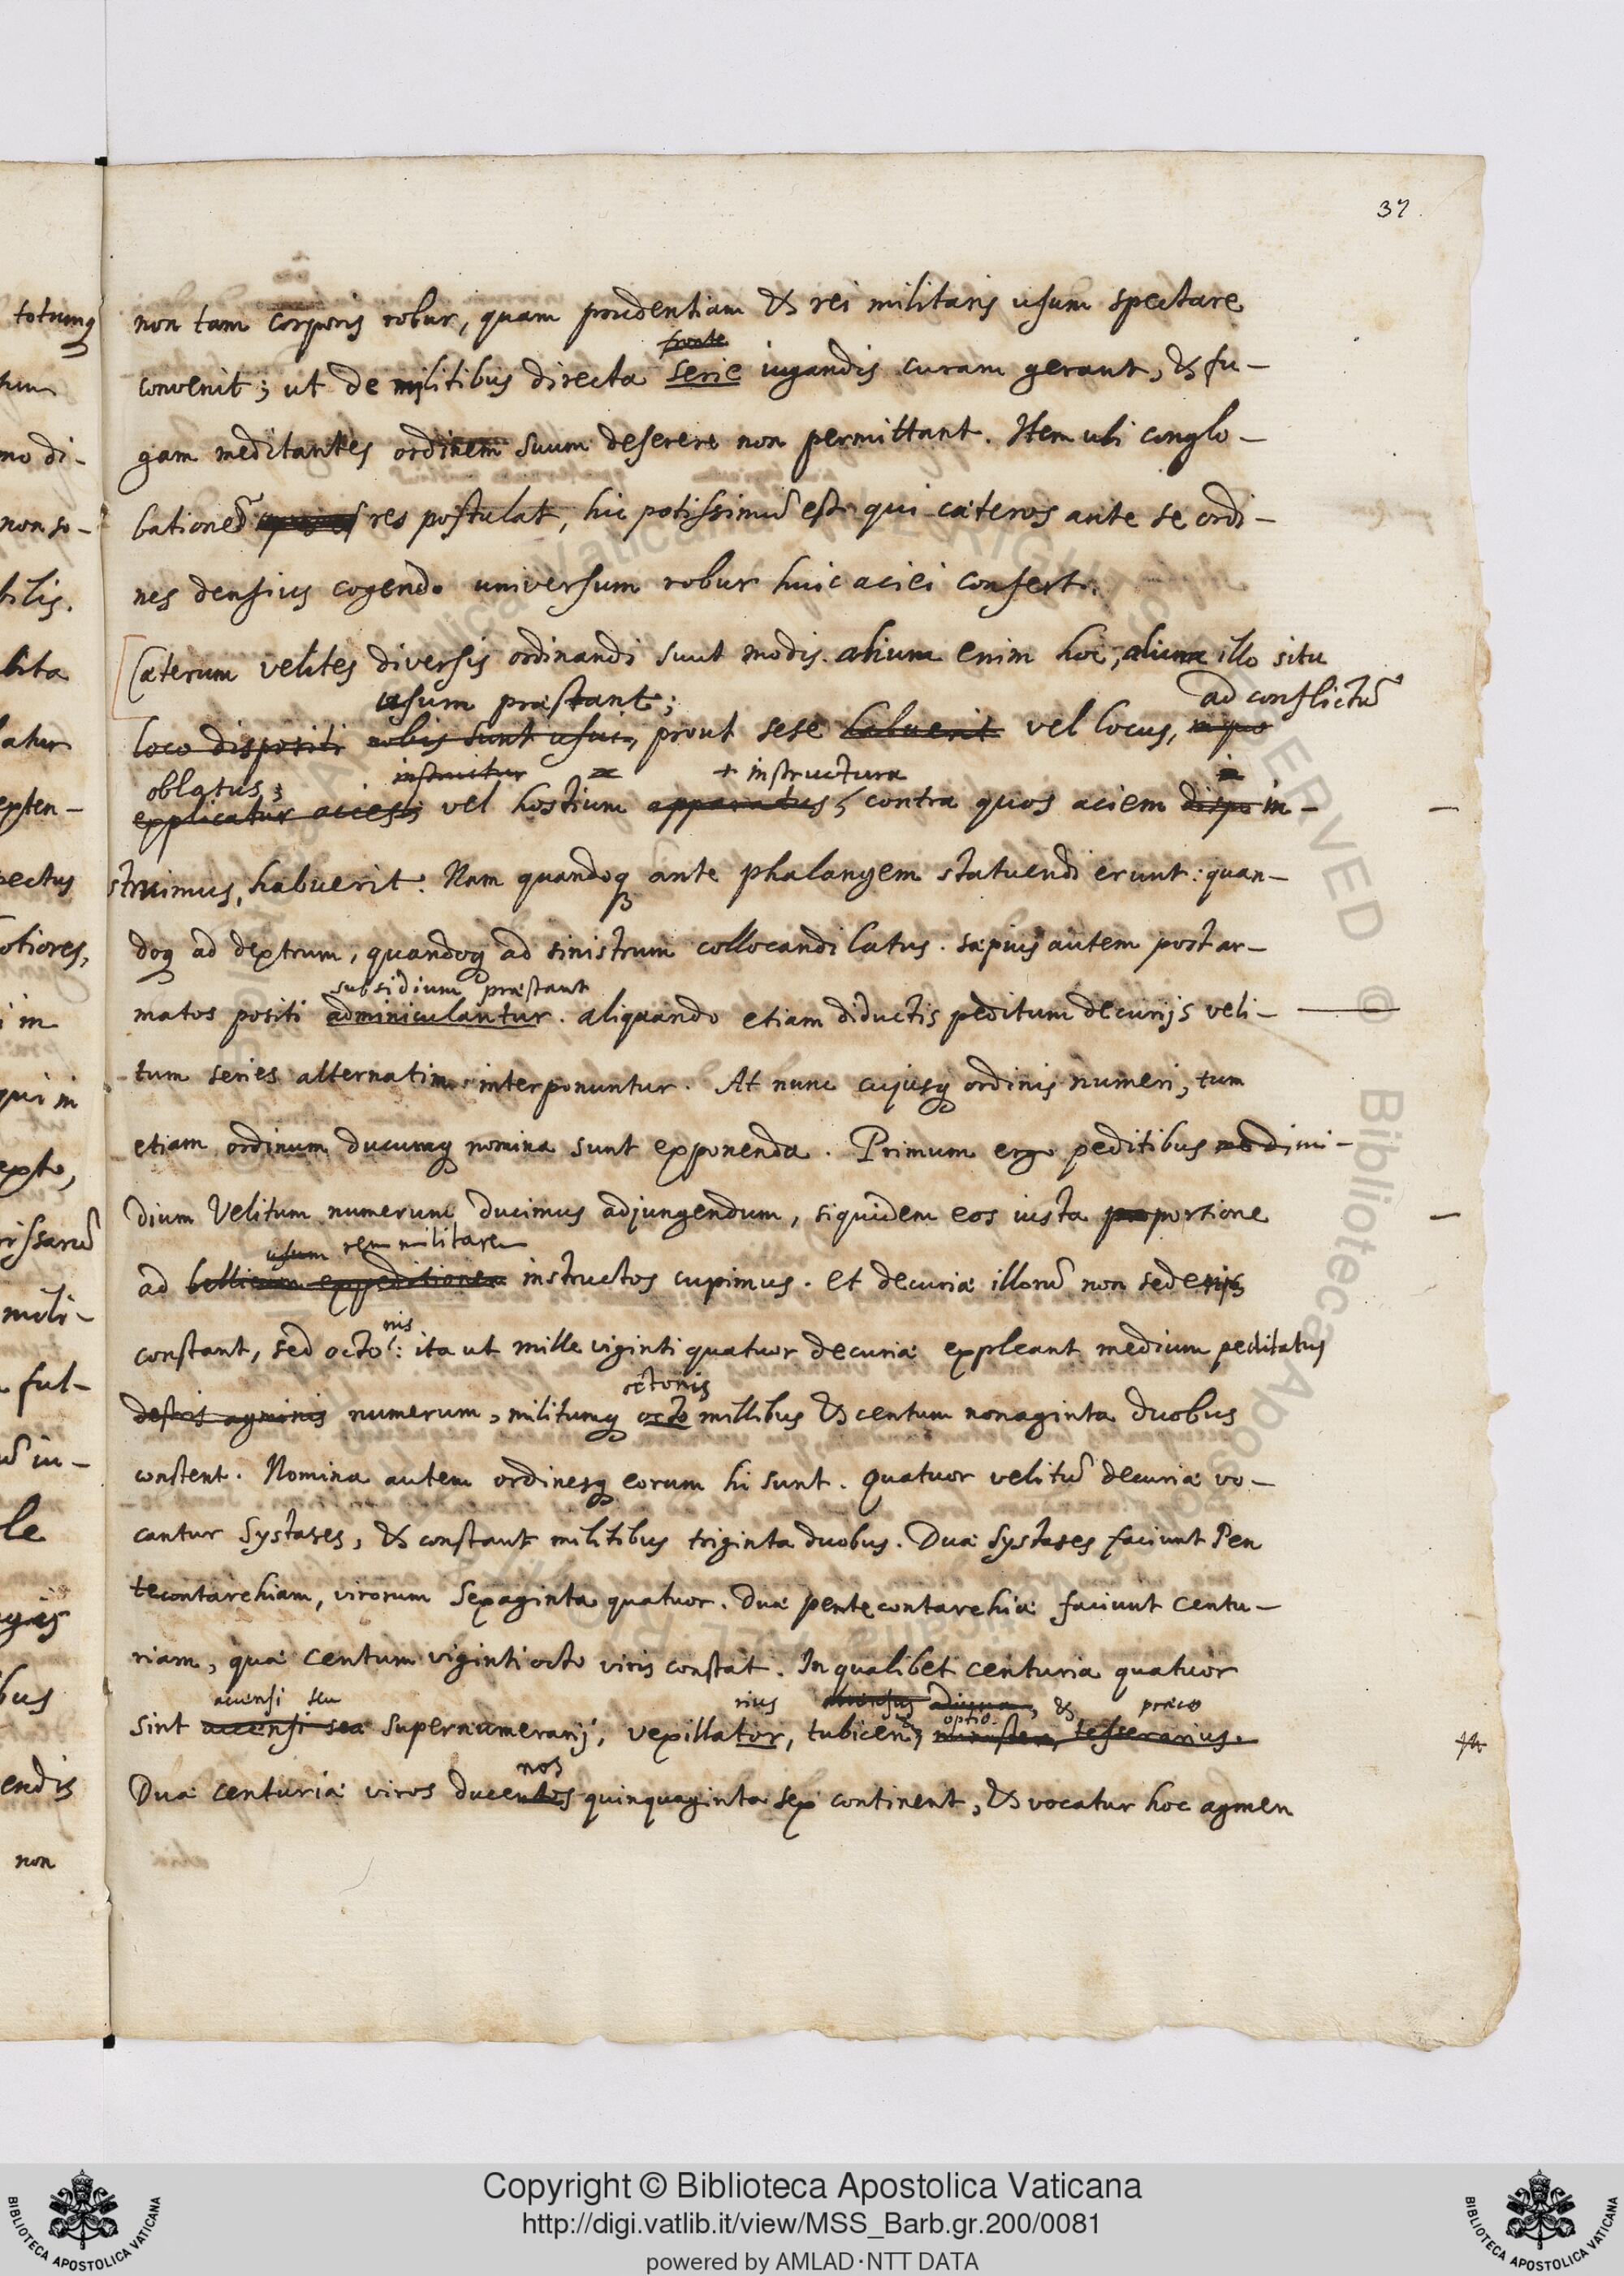 37.
non tam corporis robur, quam prudentiam & rei militaris usum spectare
fronte
convenit; ut de militibus directa serie iugandis curam gerant, & fu-
gam meditantes ordinem suum deserere non permittant. Item ubi conglo-
bationẽ res postulat, hic potissimũ est qui cæteros ante se ordi-
nes densius cogendo universum robur huic aciei confert.
Cæterum velites diversis ordinandi sunt modis. alium enim hoc, alium illo situ
usum præstant; ad conflictũ
loco dispositi nobis sunt usui, prout sese habuerit vel locus, in quo
oblatus; instruitur + instructura
explicatur acies; vel hostium apparatus, contra quos aciem dispo in-
struimus, habuerit. Nam quandoq ante phalangem statuendi erunt: quan-
doq ad dextrum, quandoq ad sinistrum collocandi latus. sæpius autem post ar-
subsidium præstant
matos positi adminiculantur. aliquando etiam diductis peditum decurijs veli-
tum series alternatim interponuntur. At nunc cujusq ordinis numeri, tum
etiam ordinum ducumq nomina sunt exponenda. Primum ergo peditibus dimi-
dium Velitum numerum ducimus adjungendum, siquidem eos iusta proportione
usum rem militarem
ad bellicam expeditionem instructos cupimus. et decuriæ illorũ non sedenis
nis
constant, sed octo: ita ut mille viginti quatuor decuriæ expleant medium peditatus
octonis
destris agminis numerum, militumq octo millibus & centum nonaginta duobus
constent. Nomina autem ordinesq eorum hi sunt. Quatuor velitũ decuriæ vo-
cantur Systases, & constant militibus triginta duobus. Duæ Systases faciunt Pen
tecontarchiam, virorum Sexaginta quatuor. Duæ pentecontarchiæ faciunt centu-
riam, quæ centum viginti octo viris constat. In qualibet centuria quatuor
accensi seu rius optio. & præco
sint accensi seu supernumerarij, vexillator, tubicen, tesserarius.
nos
Duæ centuriæ viros ducentos quinquaginta sex continent, & vocatur hoc agmen
totumq
mo di-
non so-
bilis.
lita
latur
pectus
i in
qui in
mili-
ful-
le
bus
endis
non
Copyright © Biblioteca Apostolica Vaticana
http://digi.vatlib.it/view/MSS_Barb.gr.200/0081
powered by AMLAD·NTT DATA
BIBLIOTECA APOSTOLICA VATICANA
BIBLIOTECA APOSTOLICA VATICANA